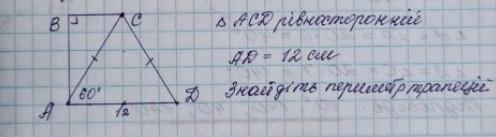 B C
Δ ACD рівносторонній
AD = 12 см
Знайдіть периметр трапеції
60°
A 12 D